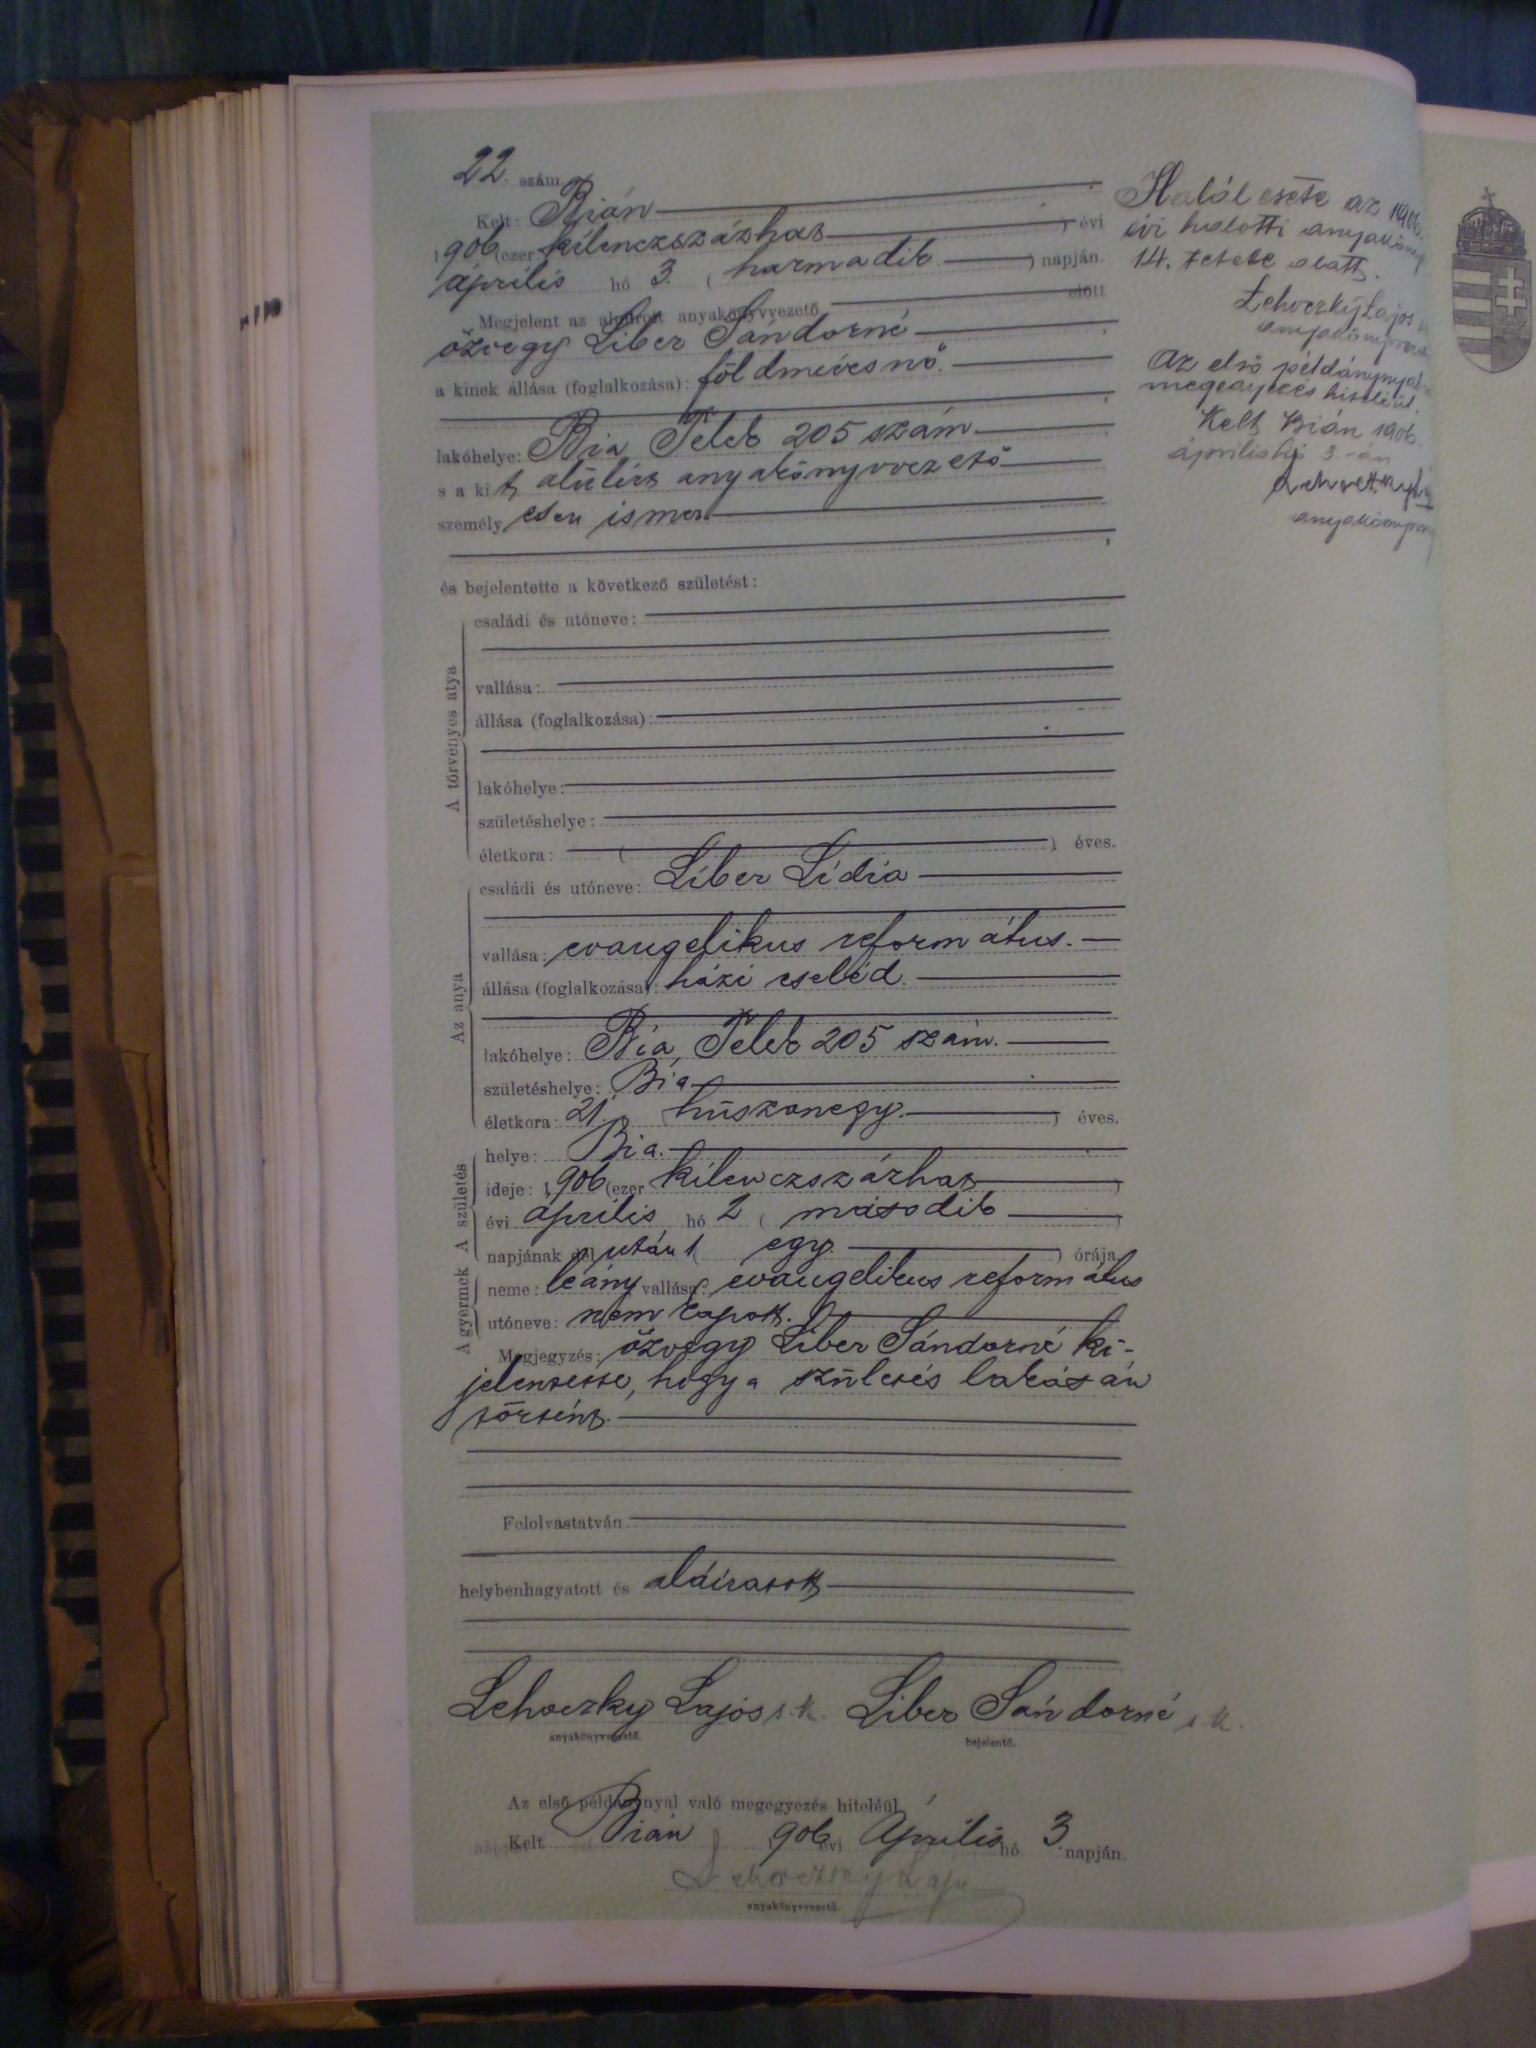 22. szám.
Kelt: Bián
1906 (ezer kilenczszázhat) évi
április hó 3. (harmadik) napján.
Megjelent az alulirott anyakönyvvezető előtt
özvegy Liber Sándorné
a kinek állása (foglalkozása): földmívesnő.
lakóhelye: Bia, Telek 205 szám
s a kit alulírt anyakönyvvezető
személyesen ismer
és bejelentette a következő születést:
A törvényes atya
családi és utóneve:
vallása:
állása (foglalkozása):
lakóhelye:
születéshelye:
életkora: ( ) éves.
Az anya
családi és utóneve: Liber Lídia
vallása: evangelikus református.
állása (foglalkozása): házi cseléd.
lakóhelye: Bia, Telek 205 szám.
születéshelye: Bia
életkora: 21 (húszonegy.) éves.
A születés
helye: Bia.
ideje: 1906 (ezer kilenczszázhat)
évi április hó 2 (második)
napjának dél után 1 (egy.) órája
A gyermek
neme: leány vallása: evangelikus református
utóneve: nem kapott.
Megjegyzés: özvegy Liber Sándorné ki-
jelentette, hogy a születés lakásán
történt.
Felolvastatván
helybenhagyatott és aláiratott
Lehoczky Lajos s.k. Liber Sándorné s.k.
anyakönyvvezető. bejelentő.
Az első példánynyal való megegyezés hiteléül
Kelt Bián 1906 évi Április hó 3. napján.
Lehoczky Lajos
anyakönyvvezető.
Halálesete az 1906.
évi halotti anyakönyv
14. tétele alatt.
Lehoczky Lajos
Az első példánynyal
megegyezés hiteléül.
Kelt Bián 1906.
április hó 3-án